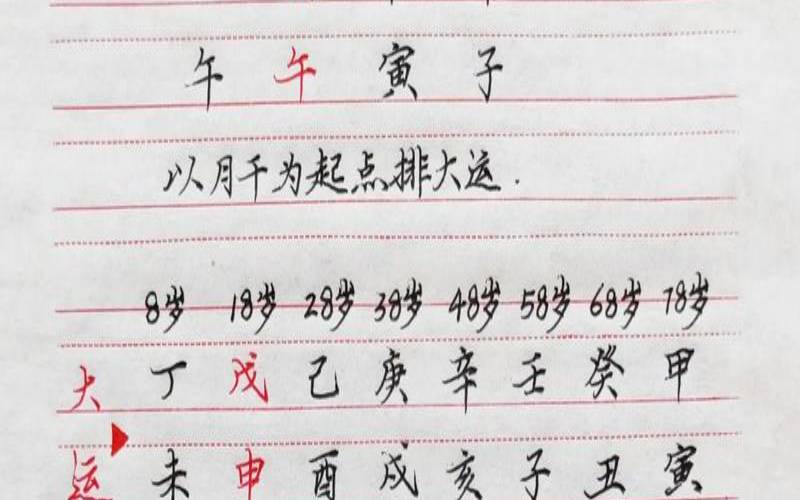 午 午 寅 子
以月干为起点排大运.
8岁 18岁 28岁 38岁 48岁 58岁 68岁 78岁
大 丁 戊 己 庚 辛 壬 癸 甲
运 未 申 酉 戌 亥 子 丑 寅